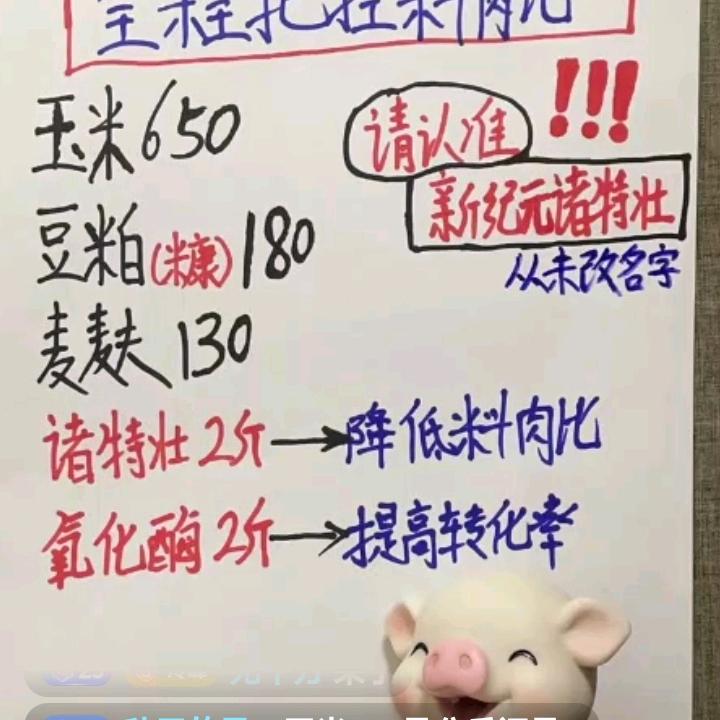 全程把控料肉比
玉米650
请认准!!!
新纪元诸特壮
豆粕(糠)180
从未改名字
麦麸130
诸特壮2斤→降低料肉比
氧化酶2斤→提高转化率